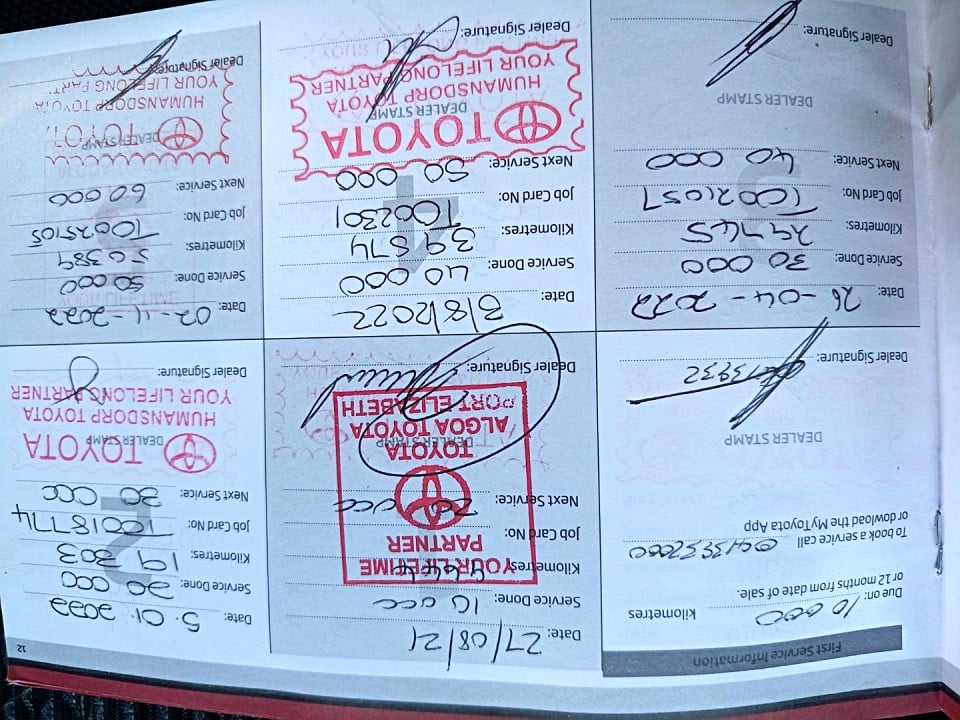 12
First Service Information
Due: on: 10 000 kilometres
or 12 months from date of sale.
To book a service call
or dowload the MyToyota App
DEALER STAMP
Dealer Signature:
Date: 27/08/21
Service Done: 10 000
Kilometres:
YOUR LIFETIME
PARTNER
Job Card No:
Next Service: 20 000
TOYOTA
DEALER STAMP
ALGOA TOYOTA
PORT ELIZABETH
Dealer Signature:
2
Date: 5.01.2022
Service Done: 20 000
Kilometres: 19 303
Job Card No: T0018774
Next Service: 30 000
TOYOTA
DEALER STAMP
HUMANSDORP TOYOTA
YOUR LIFELONG PARTNER
Dealer Signature:
3
Date: 26-04-2022
Service Done: 30 000
Kilometres: 29745
Job Card No: T0021057
Next Service: 40 000
DEALER STAMP
Dealer Signature:
4
Date: 3/8/2022
Service Done: 40 000
Kilometres: 39 874
Job Card No: T002301
Next Service: 50 000
TOYOTA
DEALER STAMP
HUMANSDORP TOYOTA
YOUR LIFELONG PARTNER
Dealer Signature:
Date: 02-11-2022
Service Done: 50 000
Kilometres: 50389
Job Card No: T0025105
Next Service: 60 000
DEALER STAMP
HUMANSDORP TOYOTA
YOUR LIFELONG
Dealer Signature: